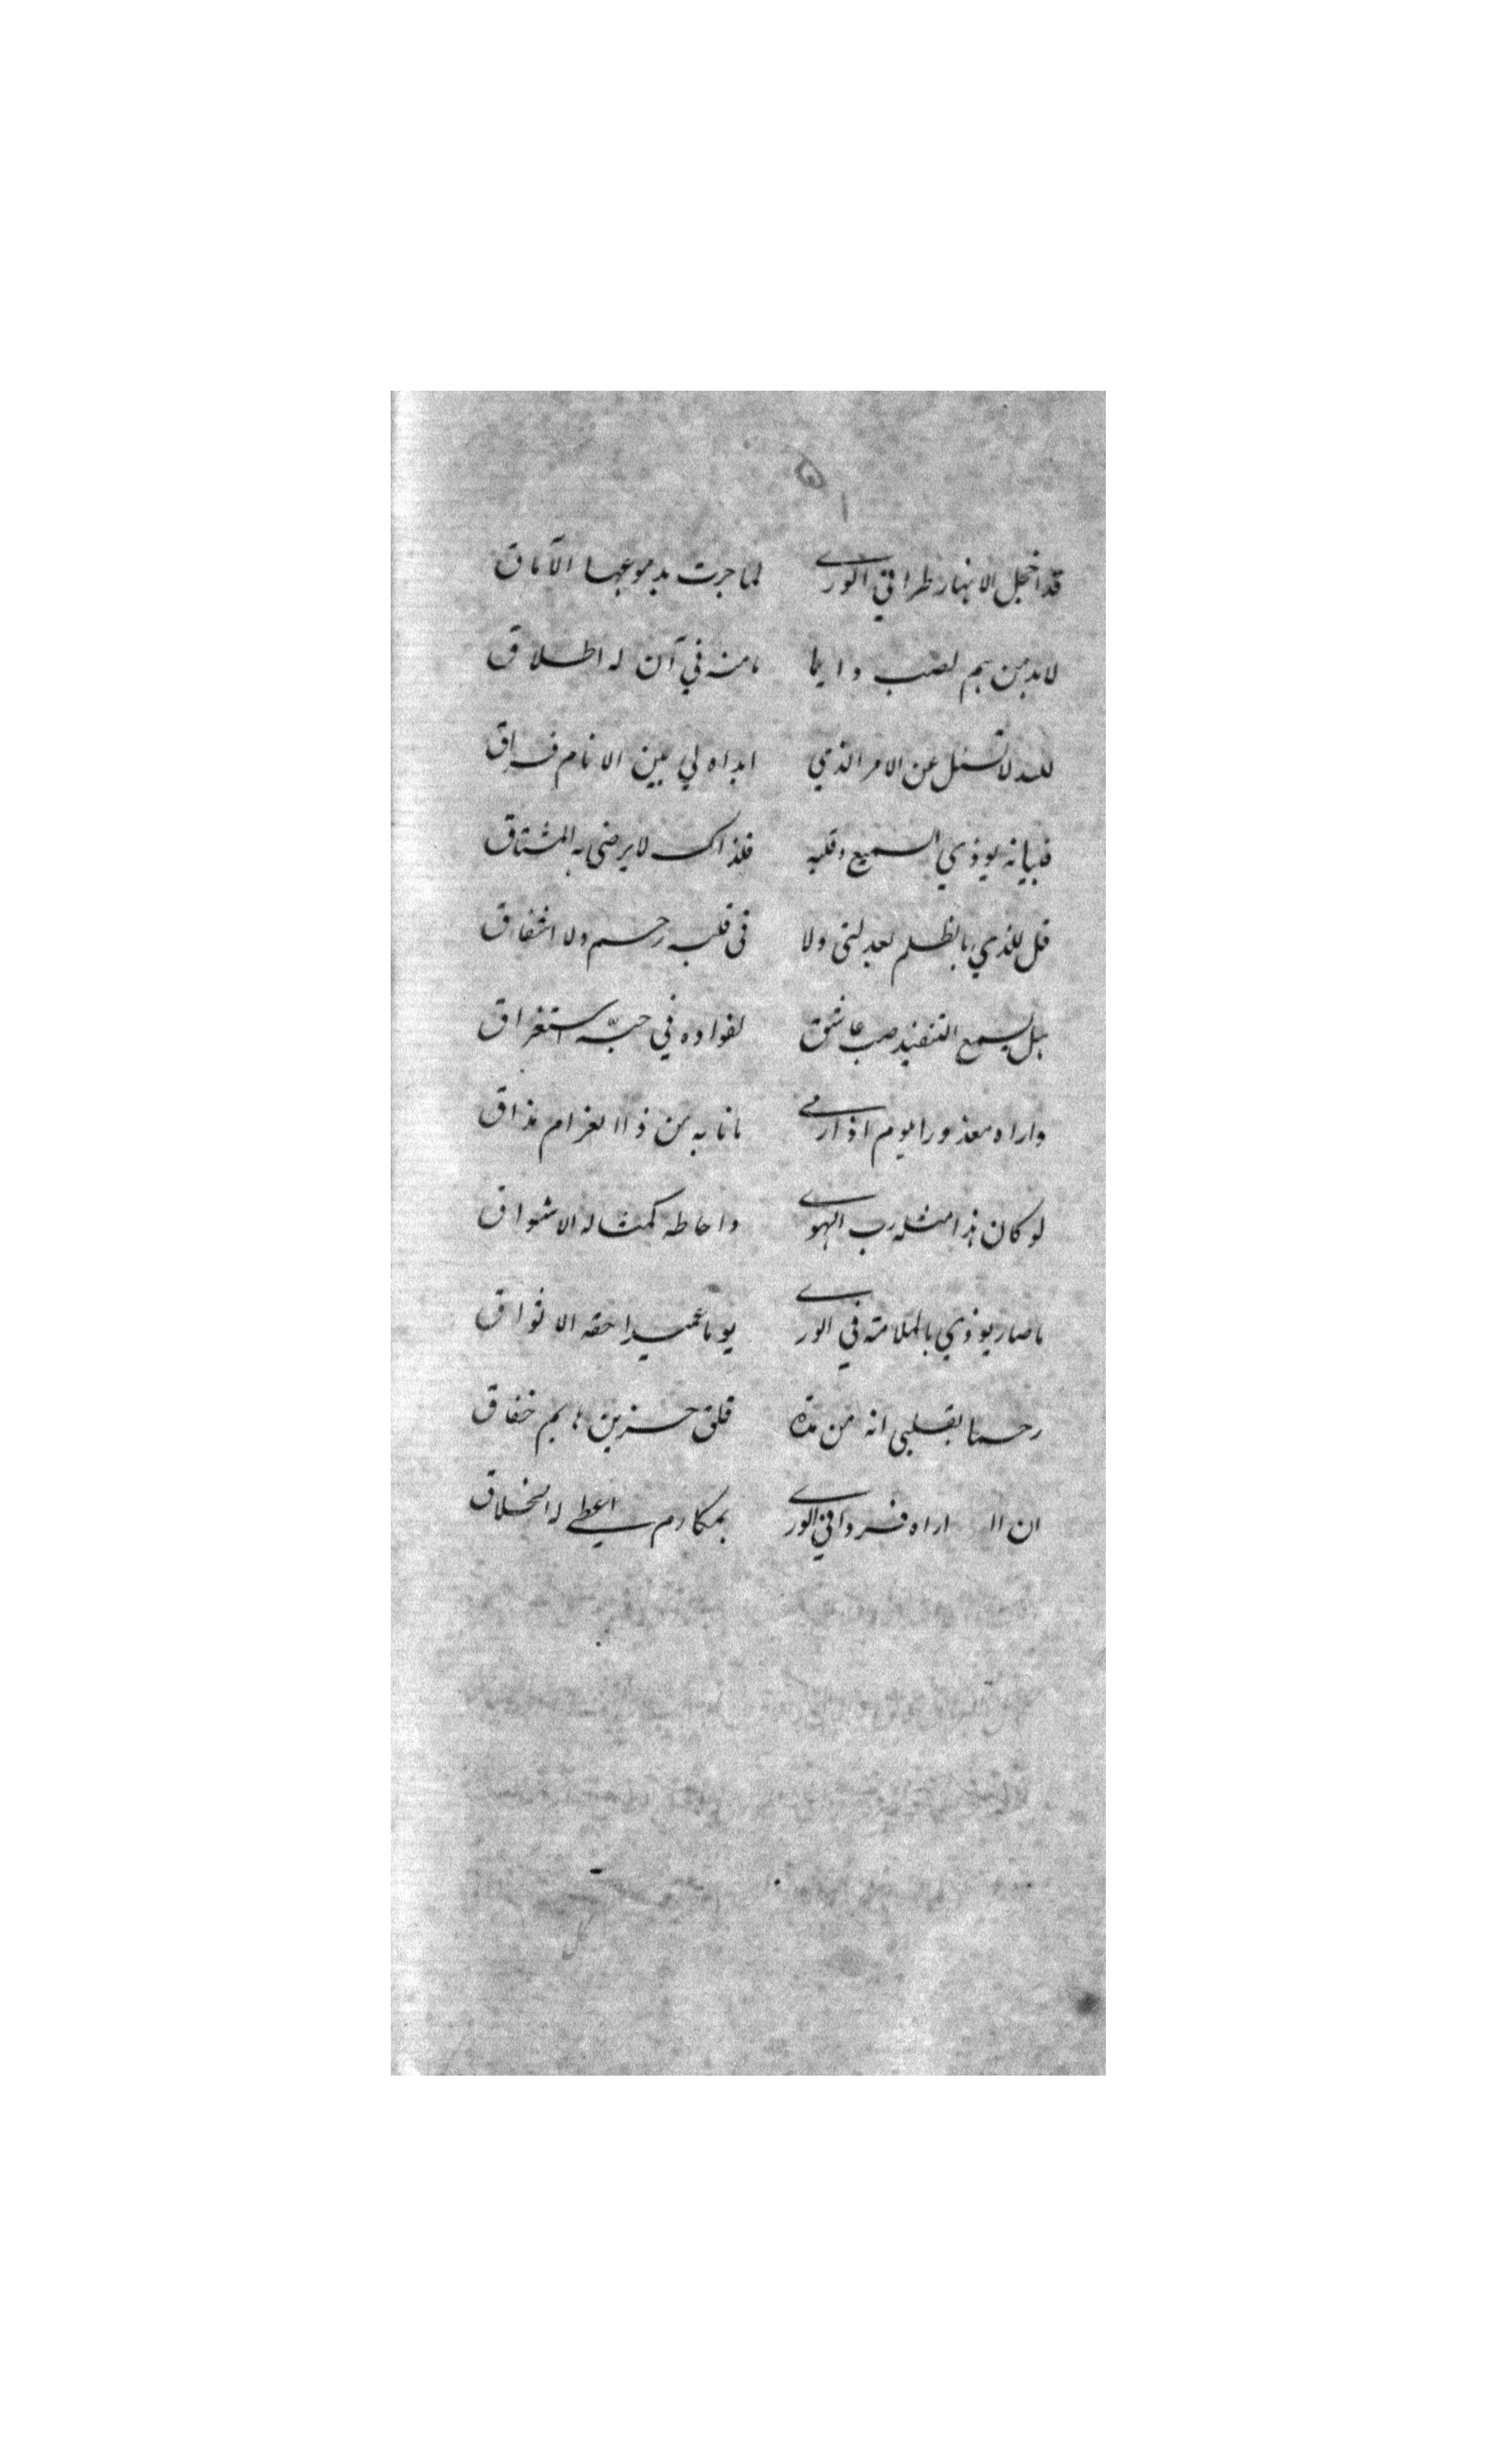 قد اخجل الانهار طرا في الورى لما جرت بدموعها الآماق
لابد من هم لصب دايما ما منه في آن له اطلاق
لله لا تسئل عن الامر الذي ابداه لي بين الانام فراق
فبيانه يوذي السميع وقلبه فلذاك لا يرضى به المشتاق
قل للذي بالظلم يعدلني ولا في قلبه رحم ولا اشفاق
هل يسمع التفنيد صب عاشق لفواده في حبه استغراق
واراه معذورا يوم اذ ارى ما نابه من ذا الغرام مذاق
لو كان هذا مثله رب الهوى واحاطه كمثاله الاشواق
ما صار يوذي بالملامة في الورى يوما عميدا حقه الاشواق
رحما بقلبي انه من مدة قلق حزين هايم خفاق
ان اراه فردا في الورى بمكارم اعطى له الخلاق